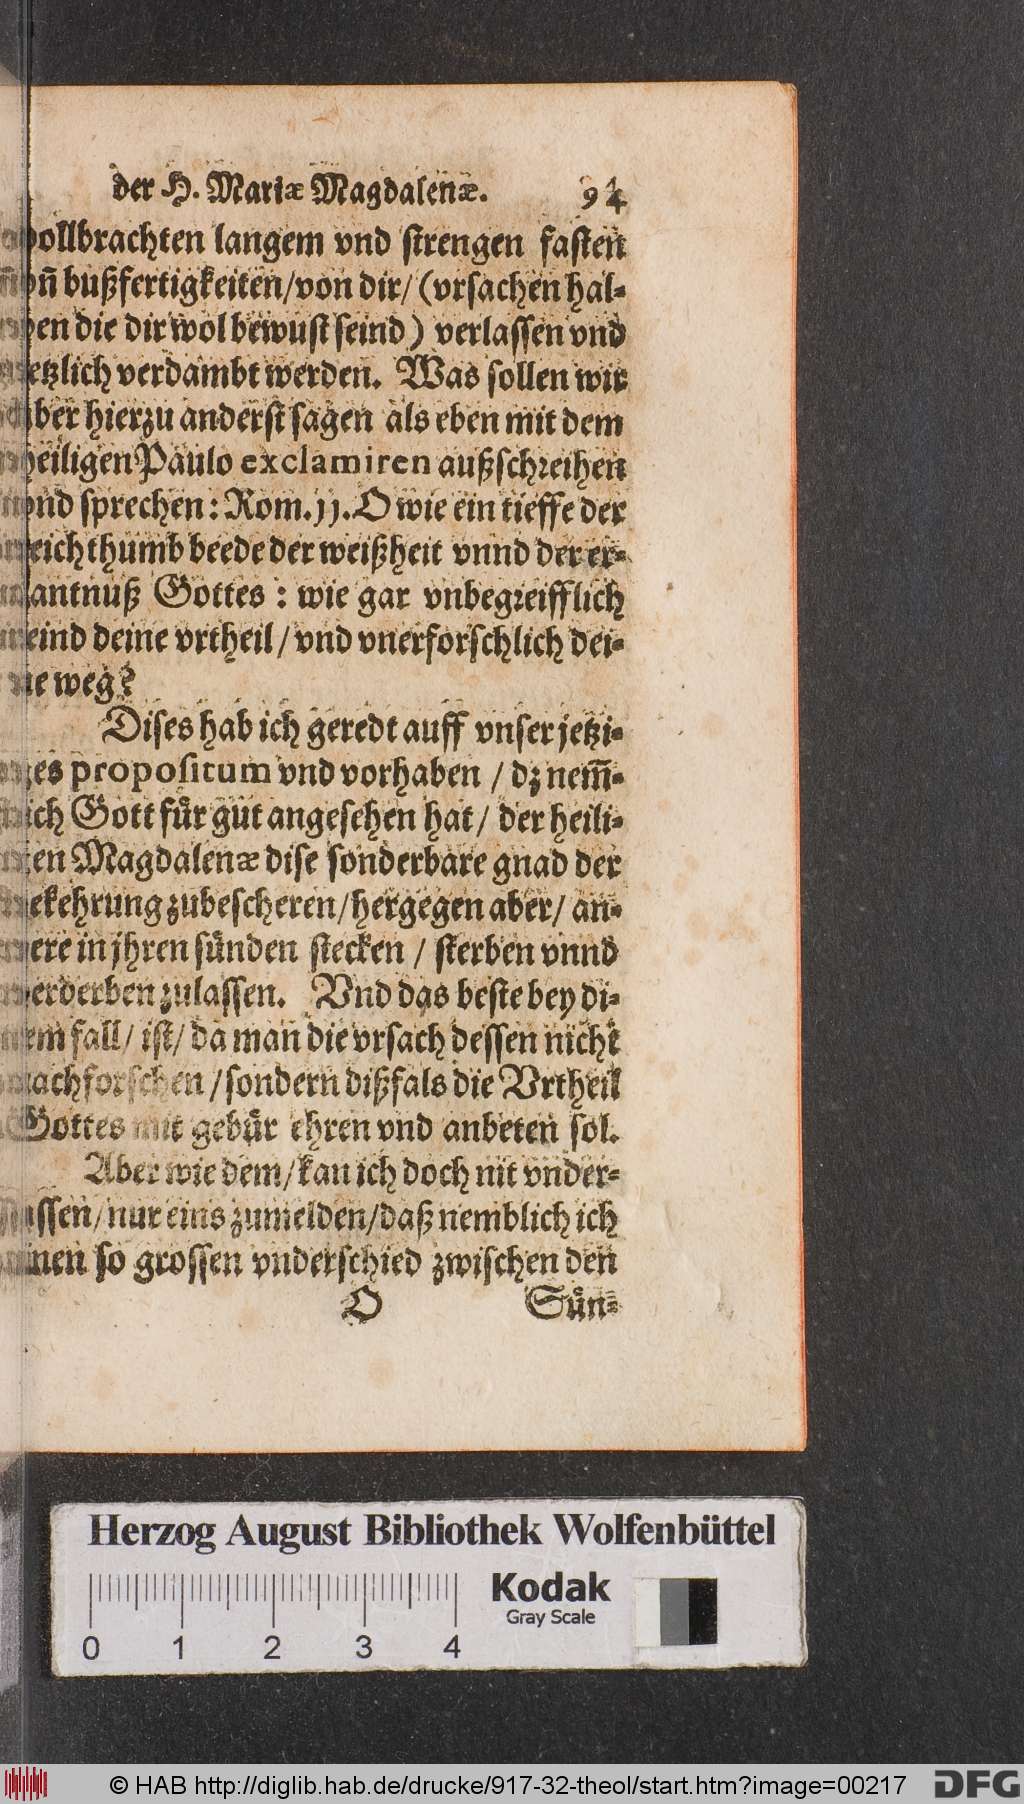 der H. Mariæ Magdalenæ. 94
vollbrachten langem vnd strengen fasten
vñ bußfertigkeiten/von dir/ (vrsachen hal-
ben die dir wol bewust seind) verlassen vnd
etzlich verdambt werden. Was sollen wir
aber hierzu anderst sagen als eben mit dem
heiligen Paulo exclamiren außschreihen
vnd sprechen: Rom. 11. O wie ein tieffe der
reichthumb beede der weißheit vnnd der er-
kantnuß Gottes : wie gar vnbegreifflich
seind deine vrtheil/ vnd vnerforschlich dei-
ne weg?
Dises hab ich geredt auff vnser jetzi-
ges propositum vnd vorhaben / dz nem̃-
lich Gott für gut angesehen hat/ der heili-
gen Magdalenæ dise sonderbare gnad der
bekehrung zubescheren/hergegen aber/ an-
dere in jhren sünden stecken / sterben vnnd
verderben zulassen. Vnd das beste bey di-
sem fall/ ist/ da man die vrsach dessen nicht
nachforschen /sondern dißfals die Vrtheil
Gottes mit gebür ehren vnd anbeten sol.
Aber wie dem/kan ich doch nit vnder-
lassen/nur eins zumelden/daß nemblich ich
einen so grossen vnderschied zwischen den
O Sün-
Herzog August Bibliothek Wolfenbüttel
Kodak
Gray Scale
0 1 2 3 4
© HAB http://diglib.hab.de/drucke/917-32-theol/start.htm?image=00217
DFG